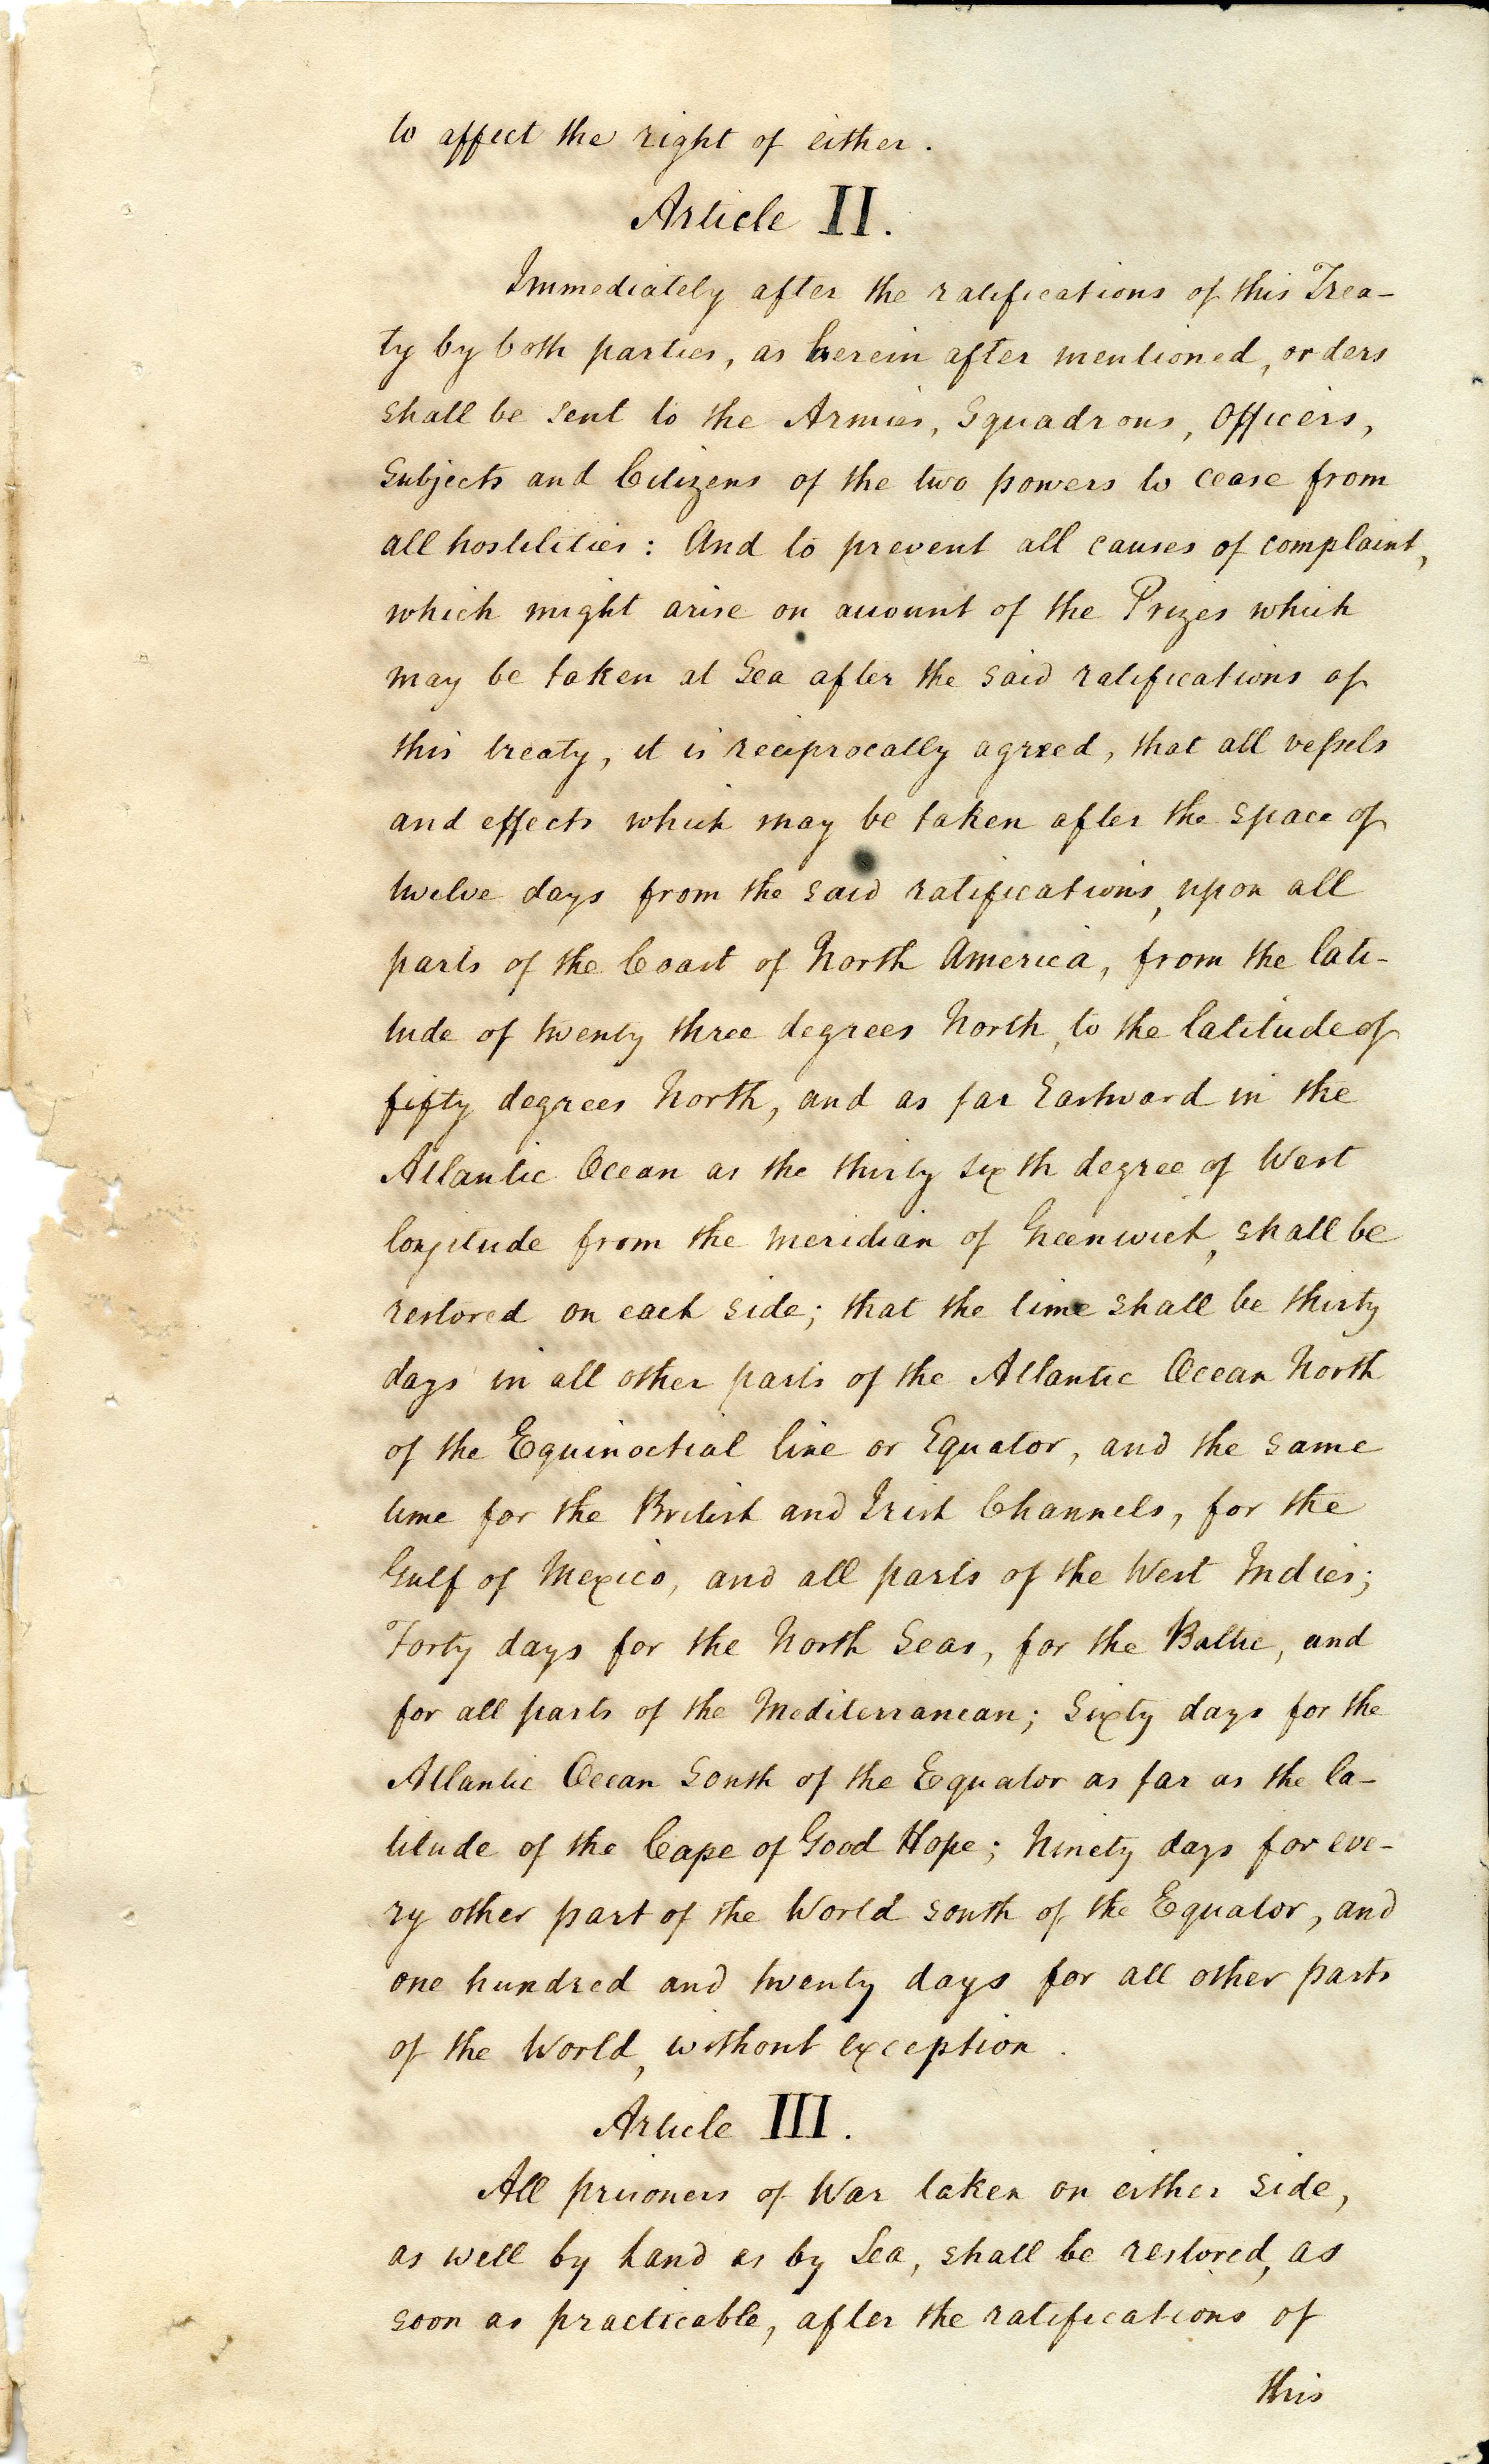 to affect the right of either.
Article II.
Immediately after the ratifications of this Trea-
ty by both parties, as herein after mentioned, orders
shall be sent to the Armies, Squadrons, Officers,
Subjects and Citizens of the two powers to cease from
all hostilities: And to prevent all causes of complaint,
which might arise on account of the Prizes which
may be taken at Sea after the said ratifications of
this treaty, it is reciprocally agreed, that all vessels
and effects which may be taken after the space of
twelve days from the said ratifications, upon all
parts of the Coast of North America, from the lati-
tude of twenty three degrees North, to the latitude of
fifty degrees North, and as far Eastward in the
Atlantic Ocean as the thirty sixth degree of West
longitude from the meridian of Greenwich, shall be
restored on each side; that the time shall be thirty
days in all other parts of the Atlantic Ocean North
of the Equinoctial line or Equator, and the same
time for the British and Irish Channels, for the
Gulf of Mexico, and all parts of the West Indies;
Forty days for the North Seas, for the Baltic, and
for all parts of the Mediterranean; Sixty days for the
Atlantic Ocean South of the Equator as far as the la-
titude of the Cape of Good Hope; Ninety days for eve-
ry other part of the World south of the Equator, and
one hundred and twenty days for all other parts
of the World, without exception.
Article III.
All prisoners of War taken on either side,
as well by Land as by Sea, shall be restored, as
soon as practicable, after the ratifications of
this